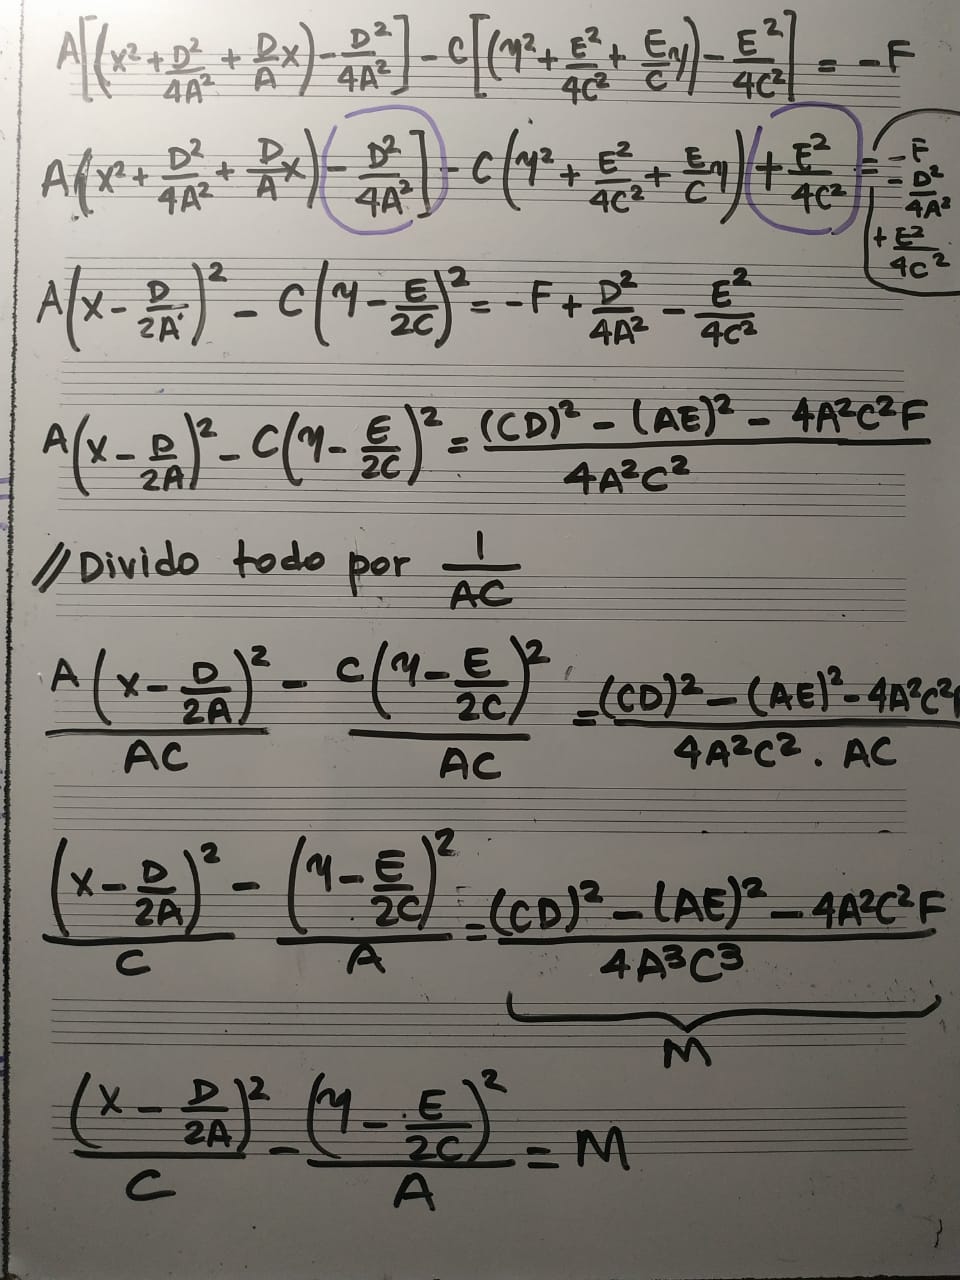 A[(x² + D²/4A² + D/A x) - D²/4A²] - C[(y² + E²/4C² + E/C y) - E²/4C²] = -F
A(x² + D²/4A² + D/A x) - D²/4A²] - C(y² + E²/4C² + E/C y) + E²/4C² = -F - D²/4A² + E²/4C²
A(x - D/2A)² - C(y - E/2C)² = -F + D²/4A² - E²/4C²
A(x - D/2A)² - C(y - E/2C)² = (CD)² - (AE)² - 4A²C²F / 4A²C²
// Divido todo por 1/AC
A(x - D/2A)² / AC - C(y - E/2C)² / AC = (CD)² - (AE)² - 4A²C² / 4A²C² . AC
(x - D/2A)² / C - (y - E/2C)² / A = (CD)² - (AE)² - 4A²C²F / 4A³C³
M
(x - D/2A)² / C - (y - E/2C)² / A = M